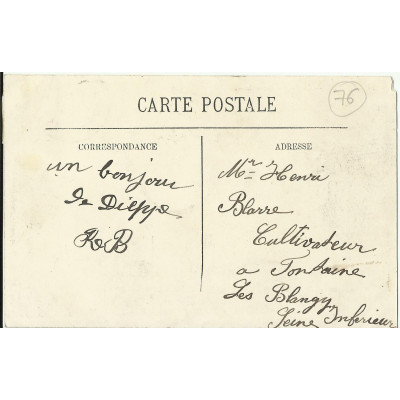 76
CARTE POSTALE
CORRESPONDANCE
un bonjour
de Dieppe
RB
ADRESSE
Mr Henri
Blarre
Cultivateur
a Fontaine
Les Blangy
Seine Inferieur